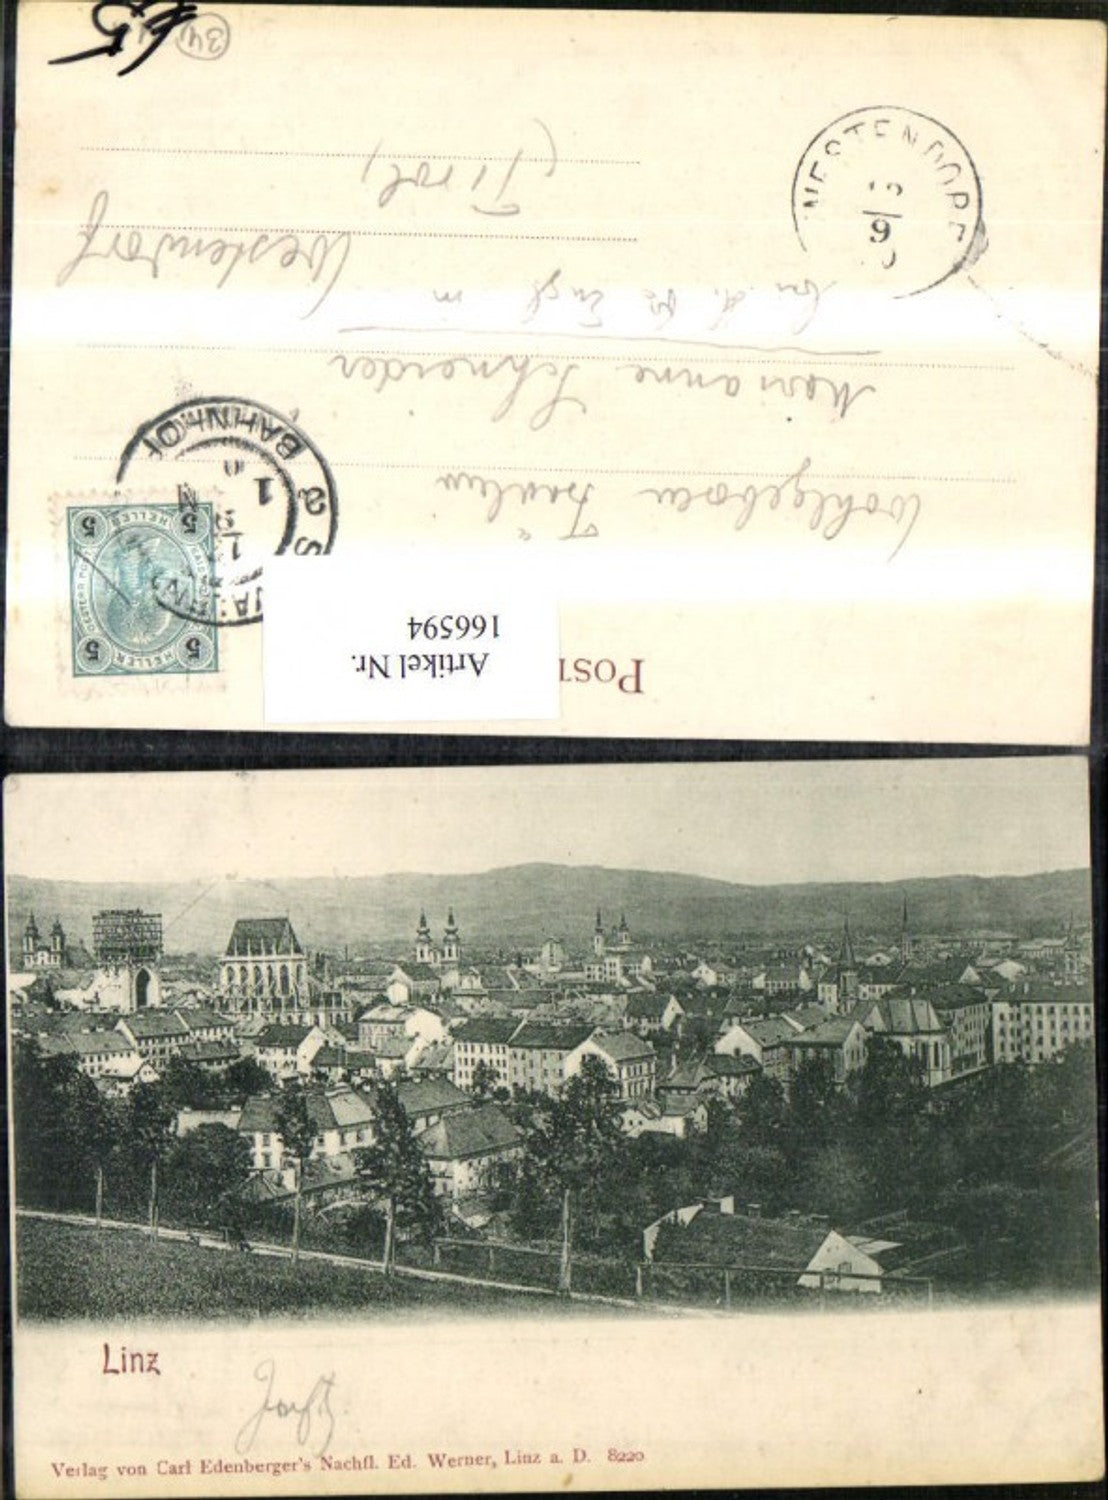 34
POST
Artikel Nr.
166594
5 HELLER 5
5 HELLER 5
BAHNHOF
1
Wohlgeboren Fräulein
Marianne Schneider
Westendorf
(Tirol)
WESTENDORF
9
Linz
Verlag von Carl Edenberger's Nachfl. Ed. Werner, Linz a. D. 8220